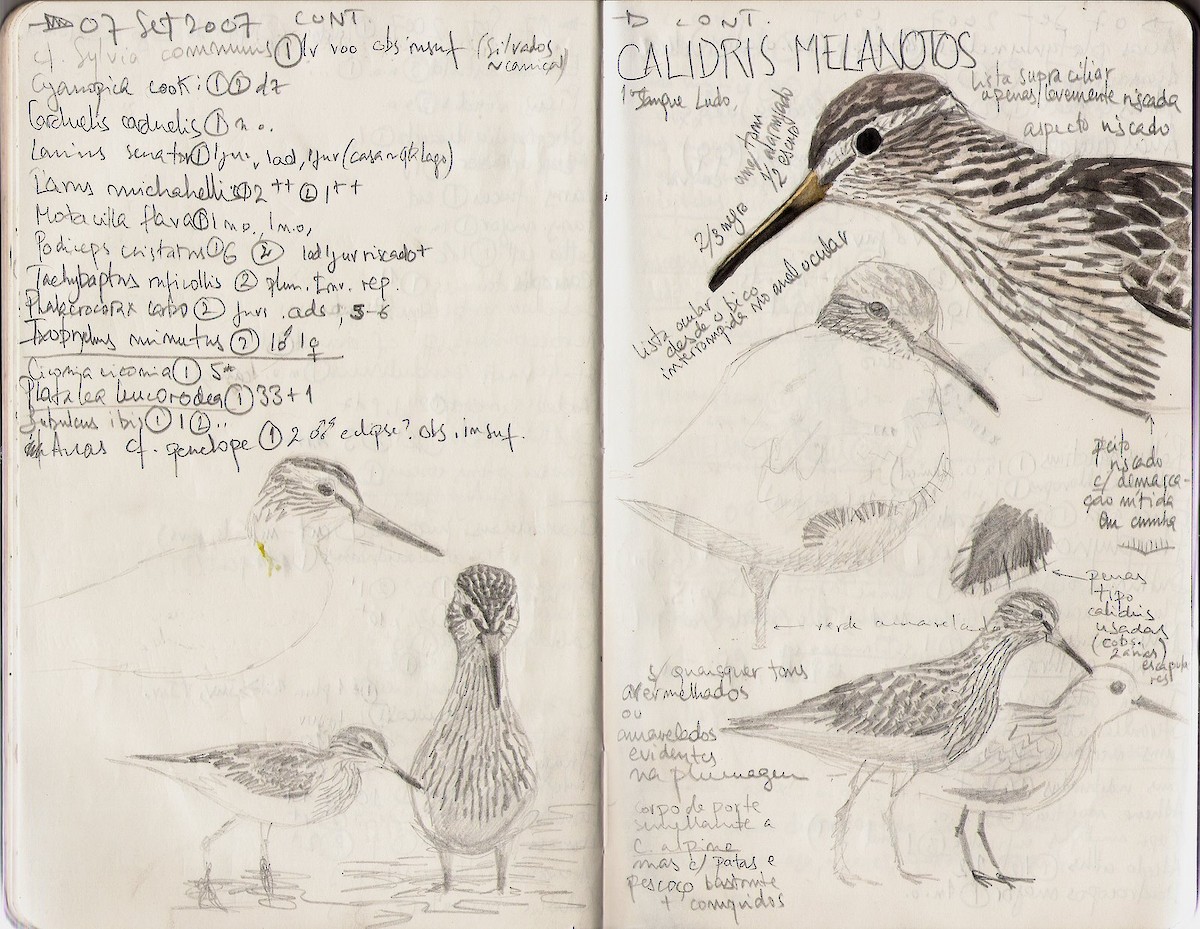 07 Set 2007 CONT.
cf. Sylvia communis ① 1v voo obs insuf (Silvados
Cyanopica cooki ① ② d7
Carduelis carduelis ① m.o.
Lanius senator ① 1juv, 1ad, 1juv (casa
Larus michahellis ① 2++ ② 1++
Motacilla flava ① 1m.o., 1m.o,
Podiceps cristatus ① 6 ② 1ad 1juv riscado+
Tachybaptus ruficollis ② plum. Inv. rep.
Phalacrocorax carbo ② juvs. ads, 5-6
Ixobrychus minutus ② 1♂ 1♀
Ciconia ciconia ① 5
Platalea leucorodea ① 33+1
Bubulcus ibis ① 1 ② ..
Anas cf. penelope ① 2 ♂♂ eclipse? obs. insuf.
CONT.
CALIDRIS MELANOTOS
Ludo,
Lista supraciliar
apenas levemente riscada
aspecto riscado
1/2 alaranjado
1/2 escuro
2/3 negro
lista ocular
desde o bico
interrompida no anel ocular
peito
riscado
c/ demarca-
ção nítida
em cunha
penas
tipo
calidris
usadas
(cobs.
2árias
escapula
res
verde amarelado
s/ quaisquer tons
avermelhados
ou
amarelados
evidentes
na plumagem
corpo de porte
semelhante a
C. alpina
mas c/ patas e
pescoço bastante
+ compridos